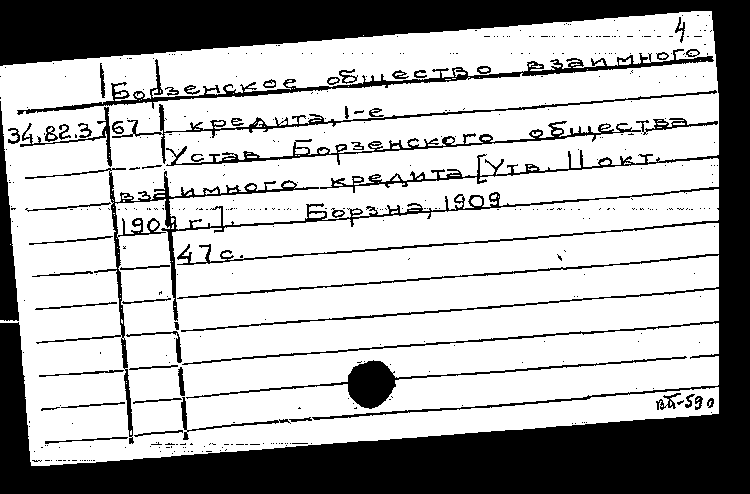 4
Борзенское общество взаимного
34.82.3767 кредита, 1-е.
Устав Борзенского общества
взаимного кредита. [Утв. 11 окт.
1909 г.]. Борзна, 1909.
47 с.
ВП-590